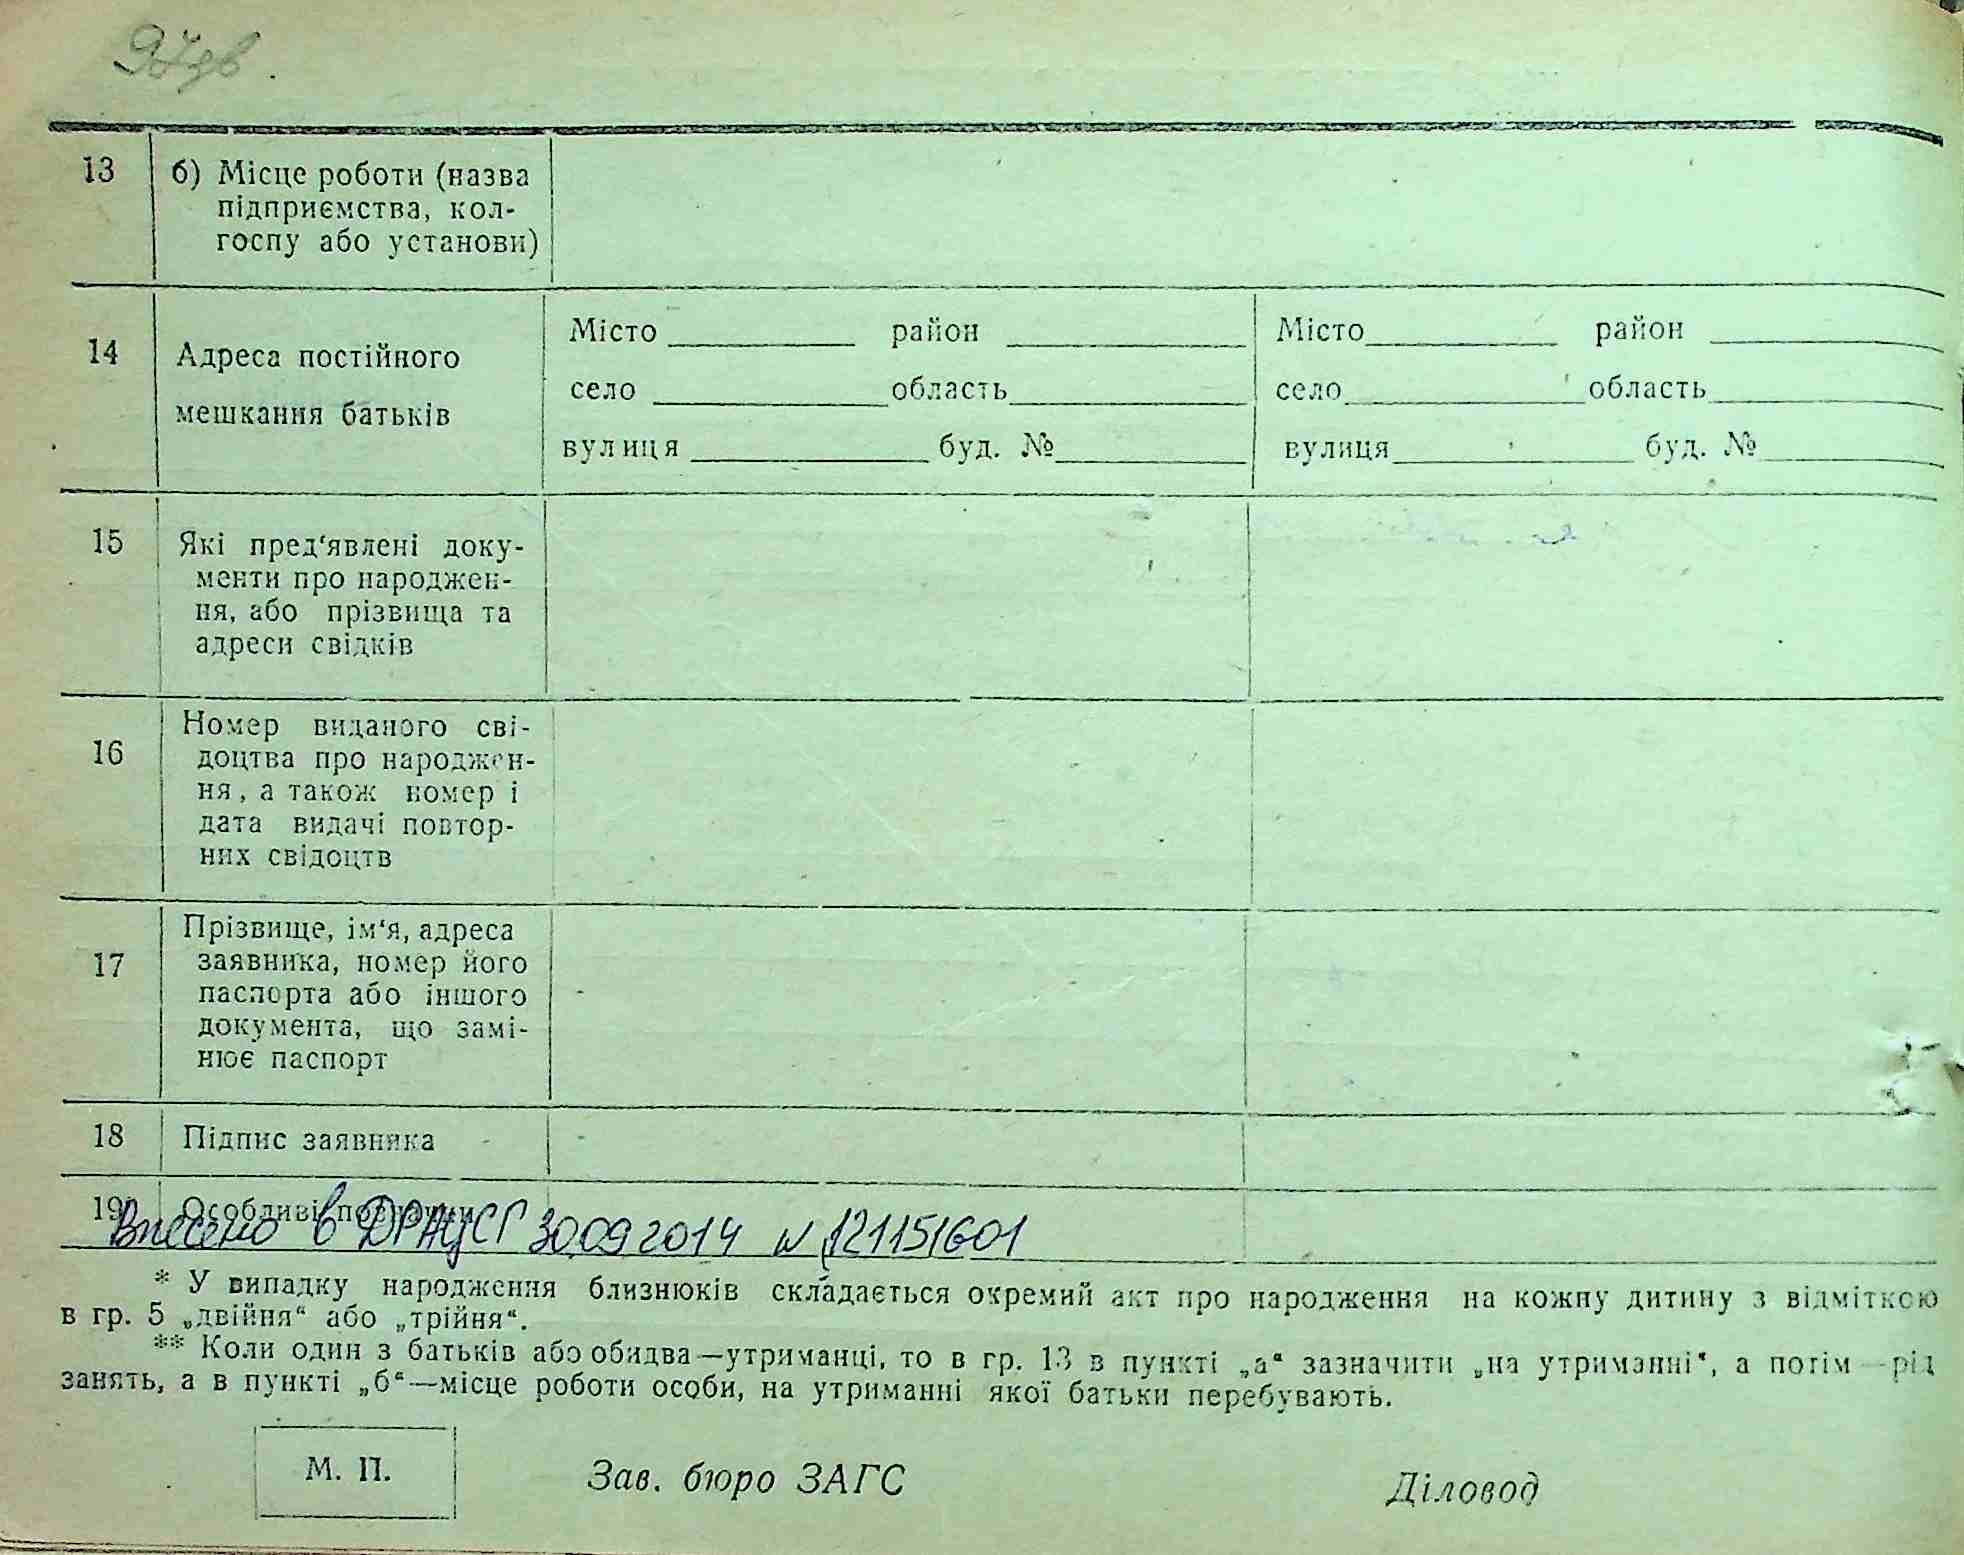 97зв.
13 б) Місце роботи (назва
підприємства, кол-
госпу або установи)
14 Адреса постійного
мешкання батьків
Місто район
село область
вулиця буд. №
Місто район
село область
вулиця буд. №
15 Які пред‘явлені доку-
менти про народжен-
ня, або прізвища та
адреси свідків
16 Номер виданого сві-
доцтва про народжен-
ня, а також номер і
дата видачі повтор-
них свідоцтв
17 Прізвище, ім‘я, адреса
заявника, номер його
паспорта або іншого
документа, що замі-
нює паспорт
18 Підпис заявника
19 Особливі позначки
Внесено в ДРАЦСГ 30.09.2014 N 121151601
* У випадку народження близнюків складається окремий акт про народження на кожну дитину з відміткою
в гр. 5 „двійня“ або „трійня“.
** Коли один з батьків або обидва—утриманці, то в гр. 13 в пункті „а“ зазначити „на утриманні“, а потім—рід
занять, а в пункті „б“—місце роботи особи, на утриманні якої батьки перебувають.
М. П.
Зав. бюро ЗАГС
Діловод